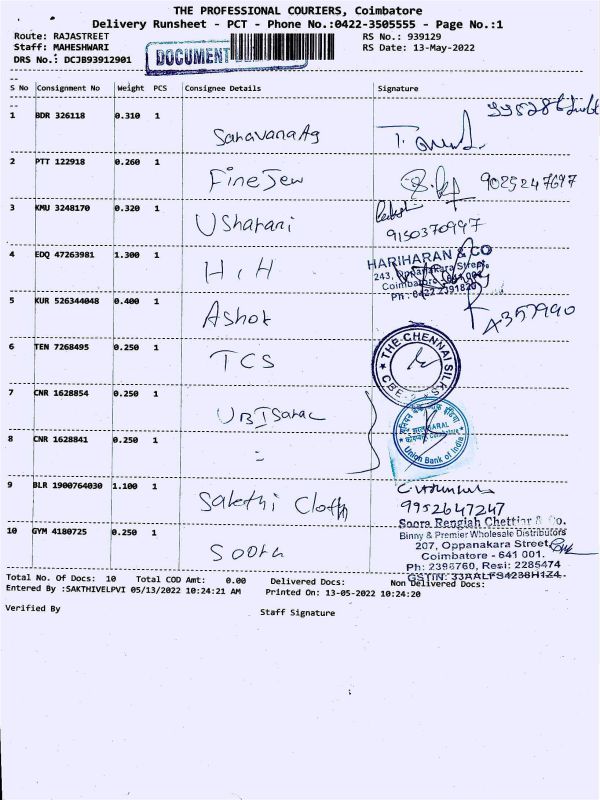 THE PROFESSIONAL COURIERS, Coimbatore
Delivery Runsheet - PCT - Phone No.:0422-3505555 - Page No.:1
Route: RAJASTREET RS No.: 939129
Staff: MAHESHWARI RS Date: 13-May-2022
DRS No.: DCJB93912901 DOCUMENT
S No Consignment No Weight PCS Consignee Details Signature
1 BDR 326118 0.310 1
2 PTT 122918 0.260 1 Fine Jew 9025247697
3 KMU 3248170 0.320 1 Usharani
9150370997
4 EDQ 47263981 1.300 1 H, H
HARIHARAN & CO
243, Oppanakara Street,
Coimbatore - 641 001
Ph : 0422 2391820
5 KUR 526344048 0.400 1 Ashok A357990
6 TEN 7268495 0.250 1 TCS
THE CHENNAI SILKS
CBE - 2
7 CNR 1628854 0.250 1 UBI Sarac
8 CNR 1628841 0.250 1 =
Union Bank of India
9 BLR 1900764030 1.100 1 Sakthi Cloth
9952647247
10 GYM 4180725 0.250 1 Soora
Soora Rengiah Chettiar & Co.
Binny & Premier Wholesale Distributors
207, Oppanakara Street,
Coimbatore - 641 001.
Ph: 2396760, Resi: 2285474
GSTIN: 33AALFS4238H1Z4
Total No. Of Docs: 10 Total COD Amt: 0.00 Delivered Docs: Non Delivered Docs:
Entered By :SAKTHIVELPVI 05/13/2022 10:24:21 AM Printed On: 13-05-2022 10:24:20
Verified By Staff Signature